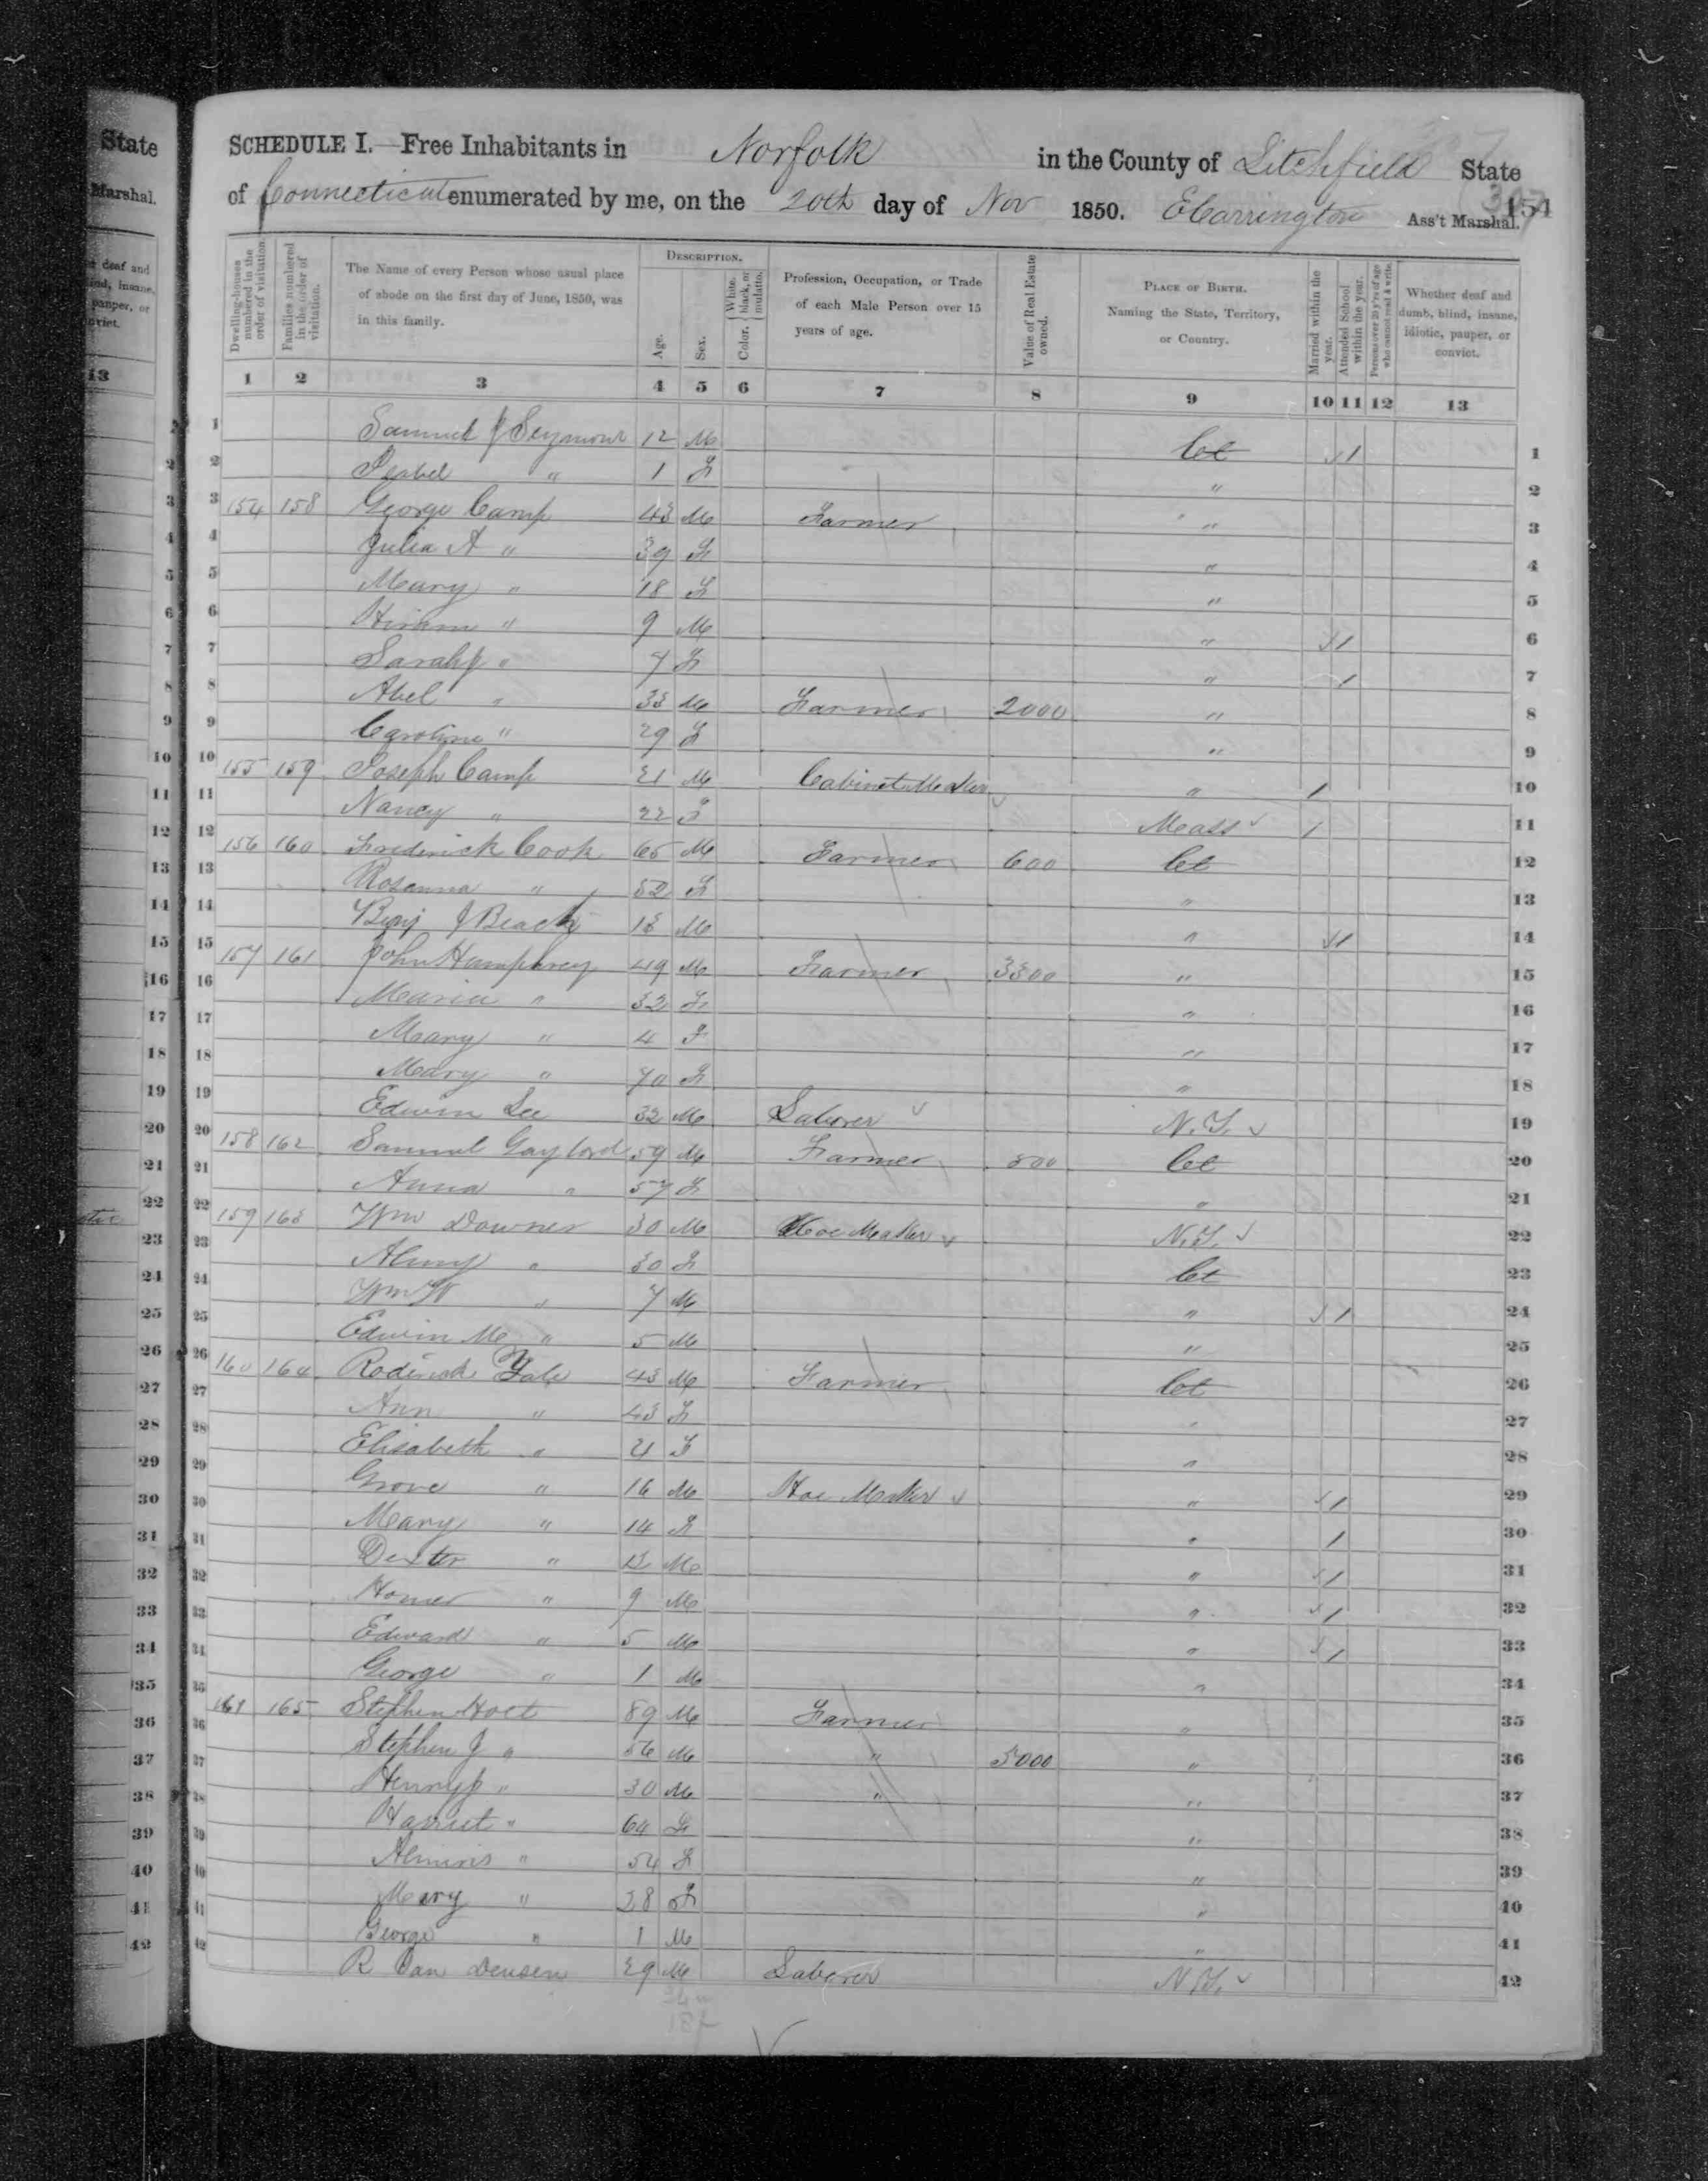 State
Marshal.
SCHEDULE I.—Free Inhabitants in Norfolk in the County of Litchfield State
of Connecticut enumerated by me, on the 20th day of Nov 1850. E Carrington Ass't Marshal. 154
Dwelling-houses numbered in the order of visitation.
Families numbered in the order of visitation.
The Name of every Person whose usual place of abode on the first day of June, 1850, was in this family.
DESCRIPTION.
Age.
Sex.
Color, { White, black, or mulatto.
Profession, Occupation, or Trade of each Male Person over 15 years of age.
Value of Real Estate owned.
PLACE OF BIRTH. Naming the State, Territory, or Country.
Married within the year.
Attended School within the year.
Persons over 20 y'rs of age who cannot read & write.
Whether deaf and dumb, blind, insane, idiotic, pauper, or convict.
1 2 3 4 5 6 7 8 9 10 11 12 13
1 Samuel J Seymour 12 M Ct 1 1
2 Isabel " 1 F " 2
3 154 158 George Camp 43 M Farmer " 3
4 Julia A " 39 F " 4
5 Mary " 18 F " 5
6 Hiram " 9 M " 1 6
7 Sarah J " 7 F " 1 7
8 Abel " 33 M Farmer 2000 " 8
9 Caroline " 29 F " 9
10 155 159 Joseph Camp 21 M Cabinet Maker " 1 10
11 Nancy " 22 F Mass 1 11
12 156 160 Frederick Cook 65 M Farmer 600 Ct 12
13 Rosanna " 52 F " 13
14 Benj J Beach 13 M " 1 14
15 157 161 John Humphrey 49 M Farmer 3300 " 15
16 Maria " 32 F " 16
17 Mary " 4 F " 17
18 Mary " 70 F " 18
19 Edwin Lee 32 M Laborer N.Y. 19
20 158 162 Samuel Gaylord 59 M Farmer 800 Ct 20
21 Anna " 57 F " 21
22 159 163 Wm Downer 30 M Hoe Maker N.Y. 22
23 Almy " 30 F Ct 23
24 Wm H " 7 M " 1 24
25 Edwin M " 5 M " 25
26 160 164 Roderick Yale 43 M Farmer Ct 26
27 Ann " 43 F " 27
28 Elisabeth " 21 F " 28
29 Grove " 16 M Hoe Maker " 1 29
30 Mary " 14 F " 1 30
31 Dexter " 13 M " 1 31
32 Homer " 9 M " 1 32
33 Edward " 5 M " 1 33
34 George " 1 M " 34
35 161 165 Stephen Holt 89 M Farmer " 35
36 Stephen J " 56 M " 5000 " 36
37 Henry P " 30 M " " 37
38 Harriet " 64 F " 38
39 " 54 F " 39
40 Mary " 28 F " 40
41 George " 1 M " 41
42 R Van Deusen 29 M Laborer N.Y. 42